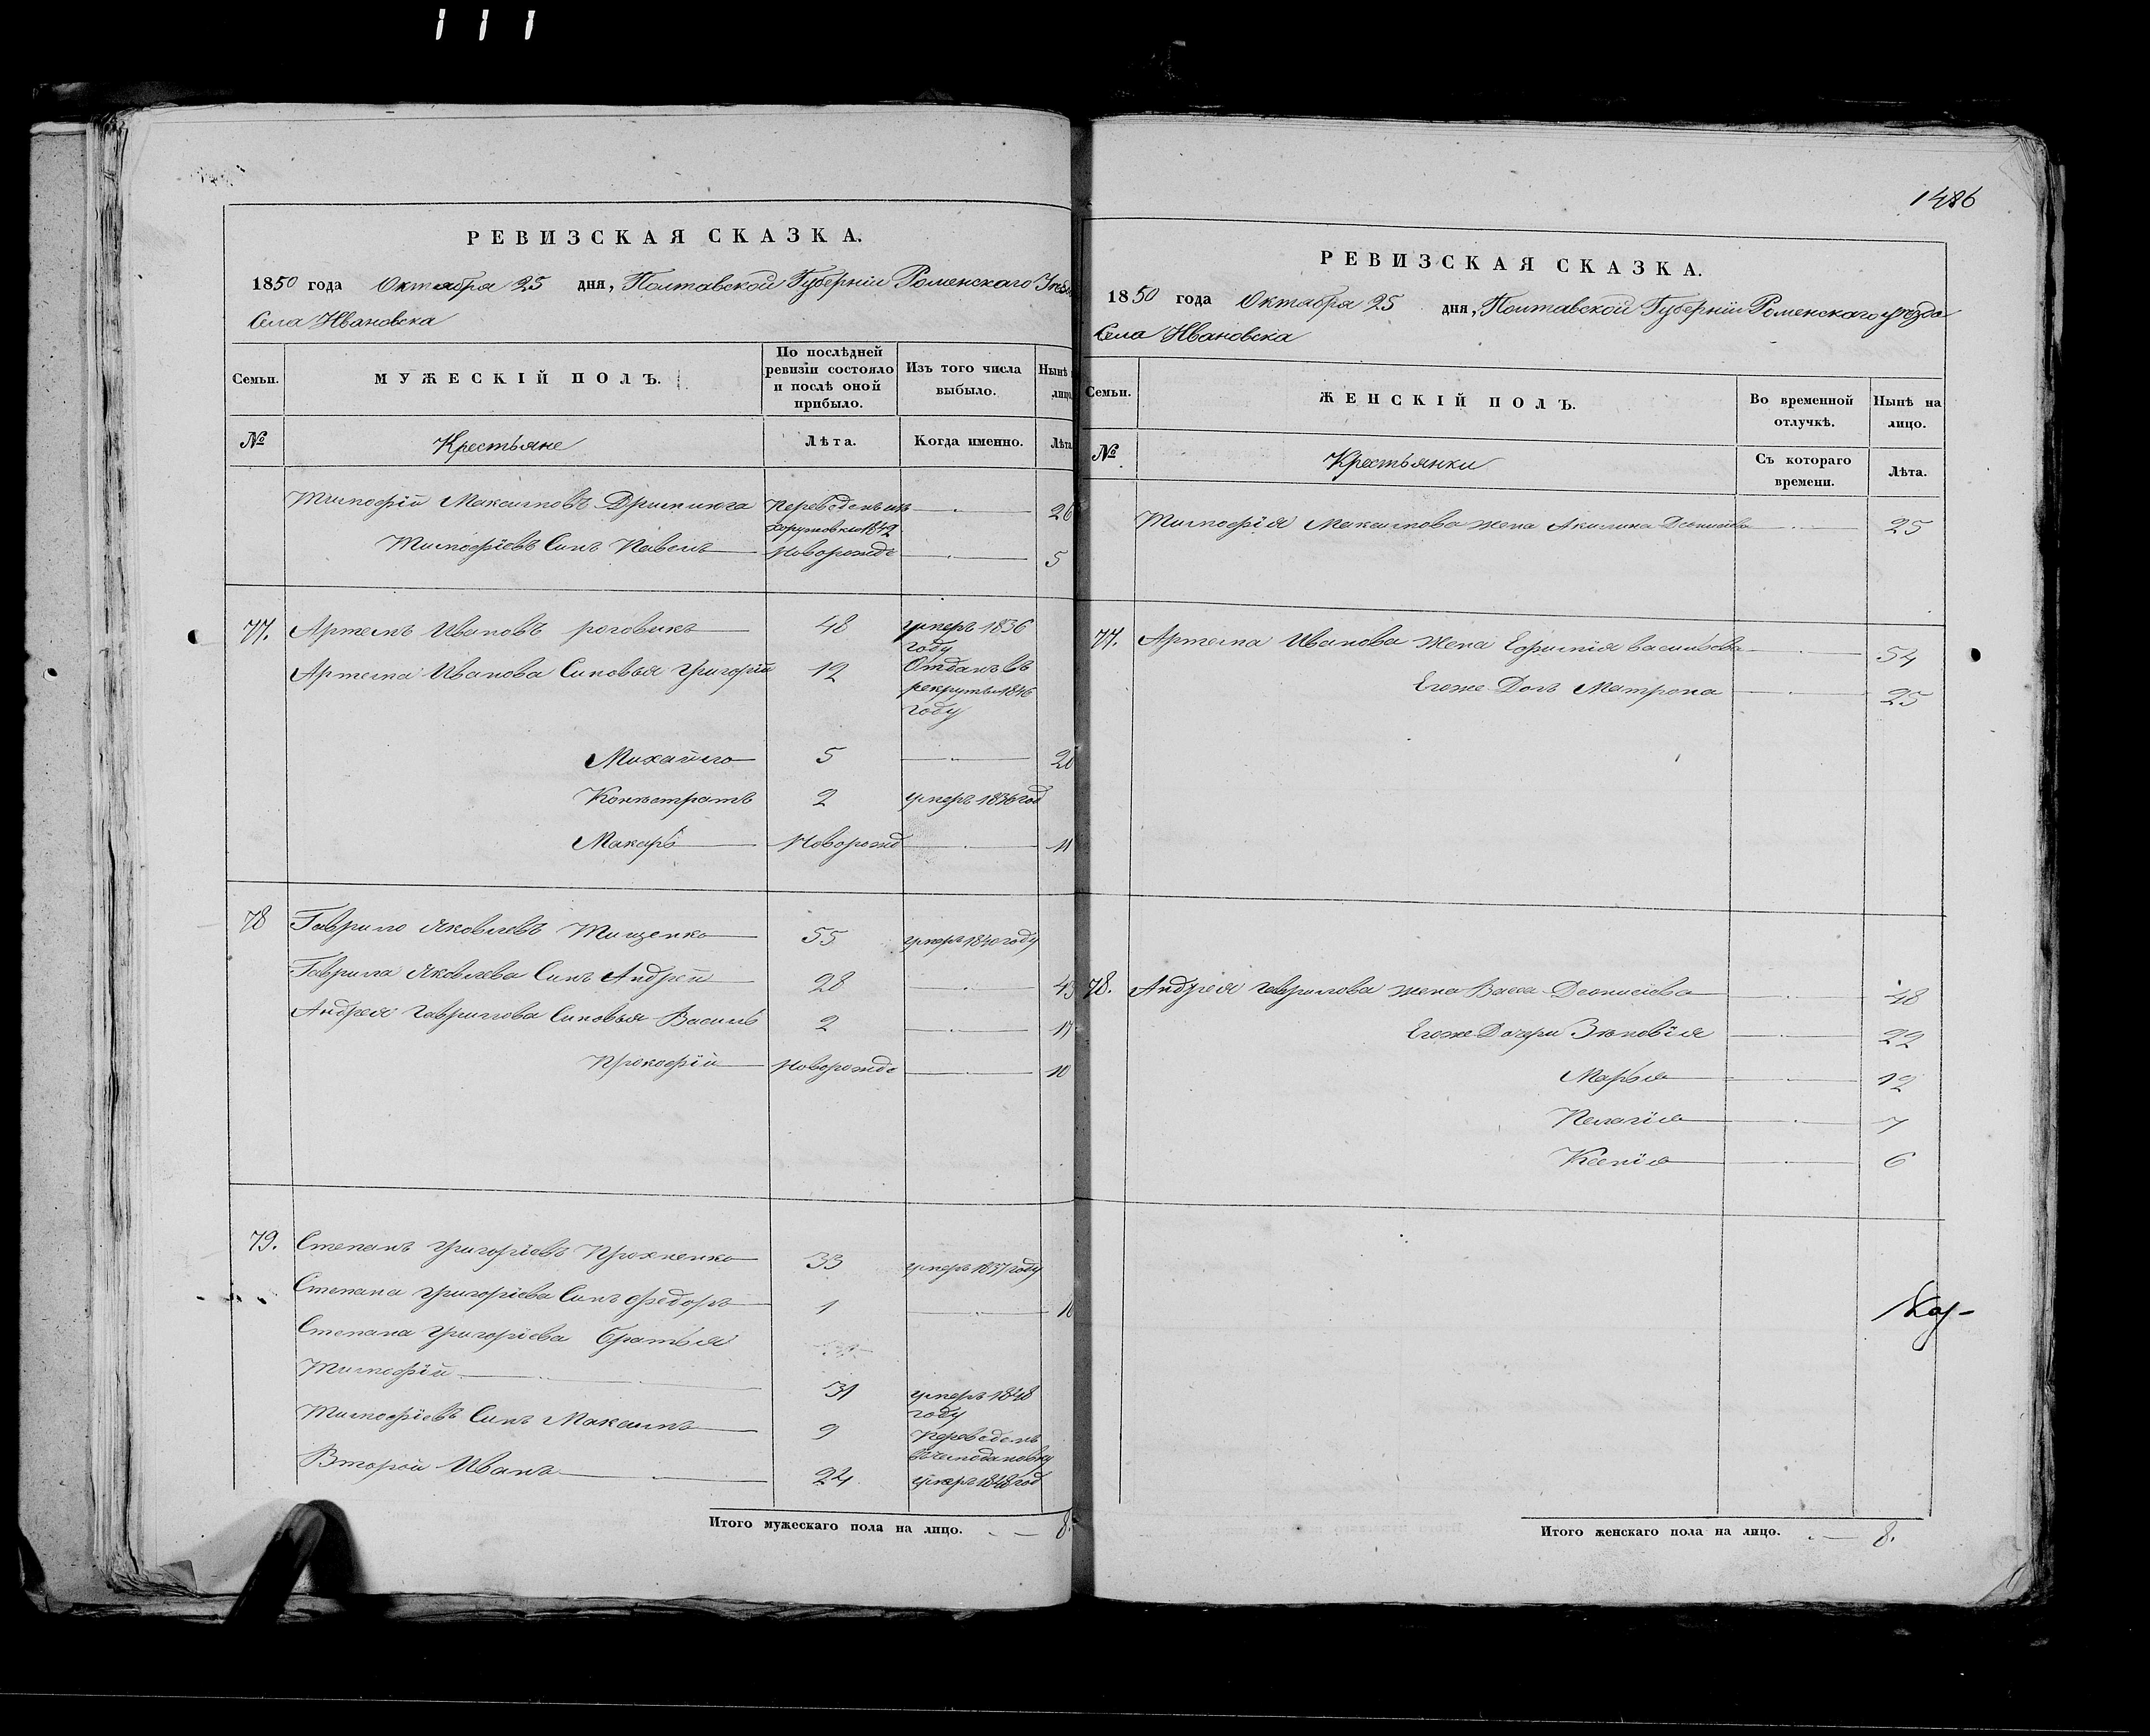 РЕВИЗСКАЯ СКАЗКА.
1850 года Октября 25 дня, Полтавской Губерніи Роменскаго
Села Ивановска
Семьи.
МУЖЕСКІЙ ПОЛЪ.
По послѣдней
ревизіи состояло
и послѣ оной
прибыло.
Изъ того числа
выбыло.
Нынѣ
лицо
№
Крестьяне
Лѣта.
Когда именно.
Лѣта
Тимофій Максимовъ Переведенъ изъ 26
1842
Тимофіевъ Синъ Павелъ Новорожде 5
77. Артемъ Ивановъ роговикъ 48 умеръ 1836
году
Артема Иванова Синовья Григорій 12 Отданъ въ
рекруты 1846
году
Михайло 5 20
Конъстратъ 2 умеръ 1836 год
Макаръ Новорожд 11
78 Гаврило Яковлевъ Тищенко 55 умеръ 1840 году
Гаврила Яковлева Синъ Андрей 28 43
Андрея Гаврилова Синовья Василь 2 17
Прокофій Новорожде 10
79. Степанъ Григоріевъ Прохненко 33 умеръ 1837 году
Степана Григоріева Синъ Федоръ 1 16
Степана Григоріева Братья
Тимофій 31 умеръ 1848
году
Тимофіевъ Синъ Максимъ 9 Переведенъ
Второй Иванъ 24 умеръ 1848 год
Итого мужескаго пола на лицо. 8.
1486
РЕВИЗСКАЯ СКАЗКА.
1850 года Октября 25 дня, Полтавской Губерніи Роменскаго уезда
Села Ивановска
Семьи.
ЖЕНСКІЙ ПОЛЪ.
Во временной
отлучкѣ.
Нынѣ на
лицо.
№
Крестьянки
Съ котораго
времени.
Лѣта.
Тимофія Максимова жена Акилина Денисіева 25
77. Артема Иванова Жена Ефимія Василіева 54
Егоже Дочь Матрона 25
78. Андрея Гаврилова жена Васса Деонисіева 48
Егоже Дочери Зѣновія 22
Марья 12
Пелагія 7
Ксенія 6
Итого женскаго пола на лицо. 8.